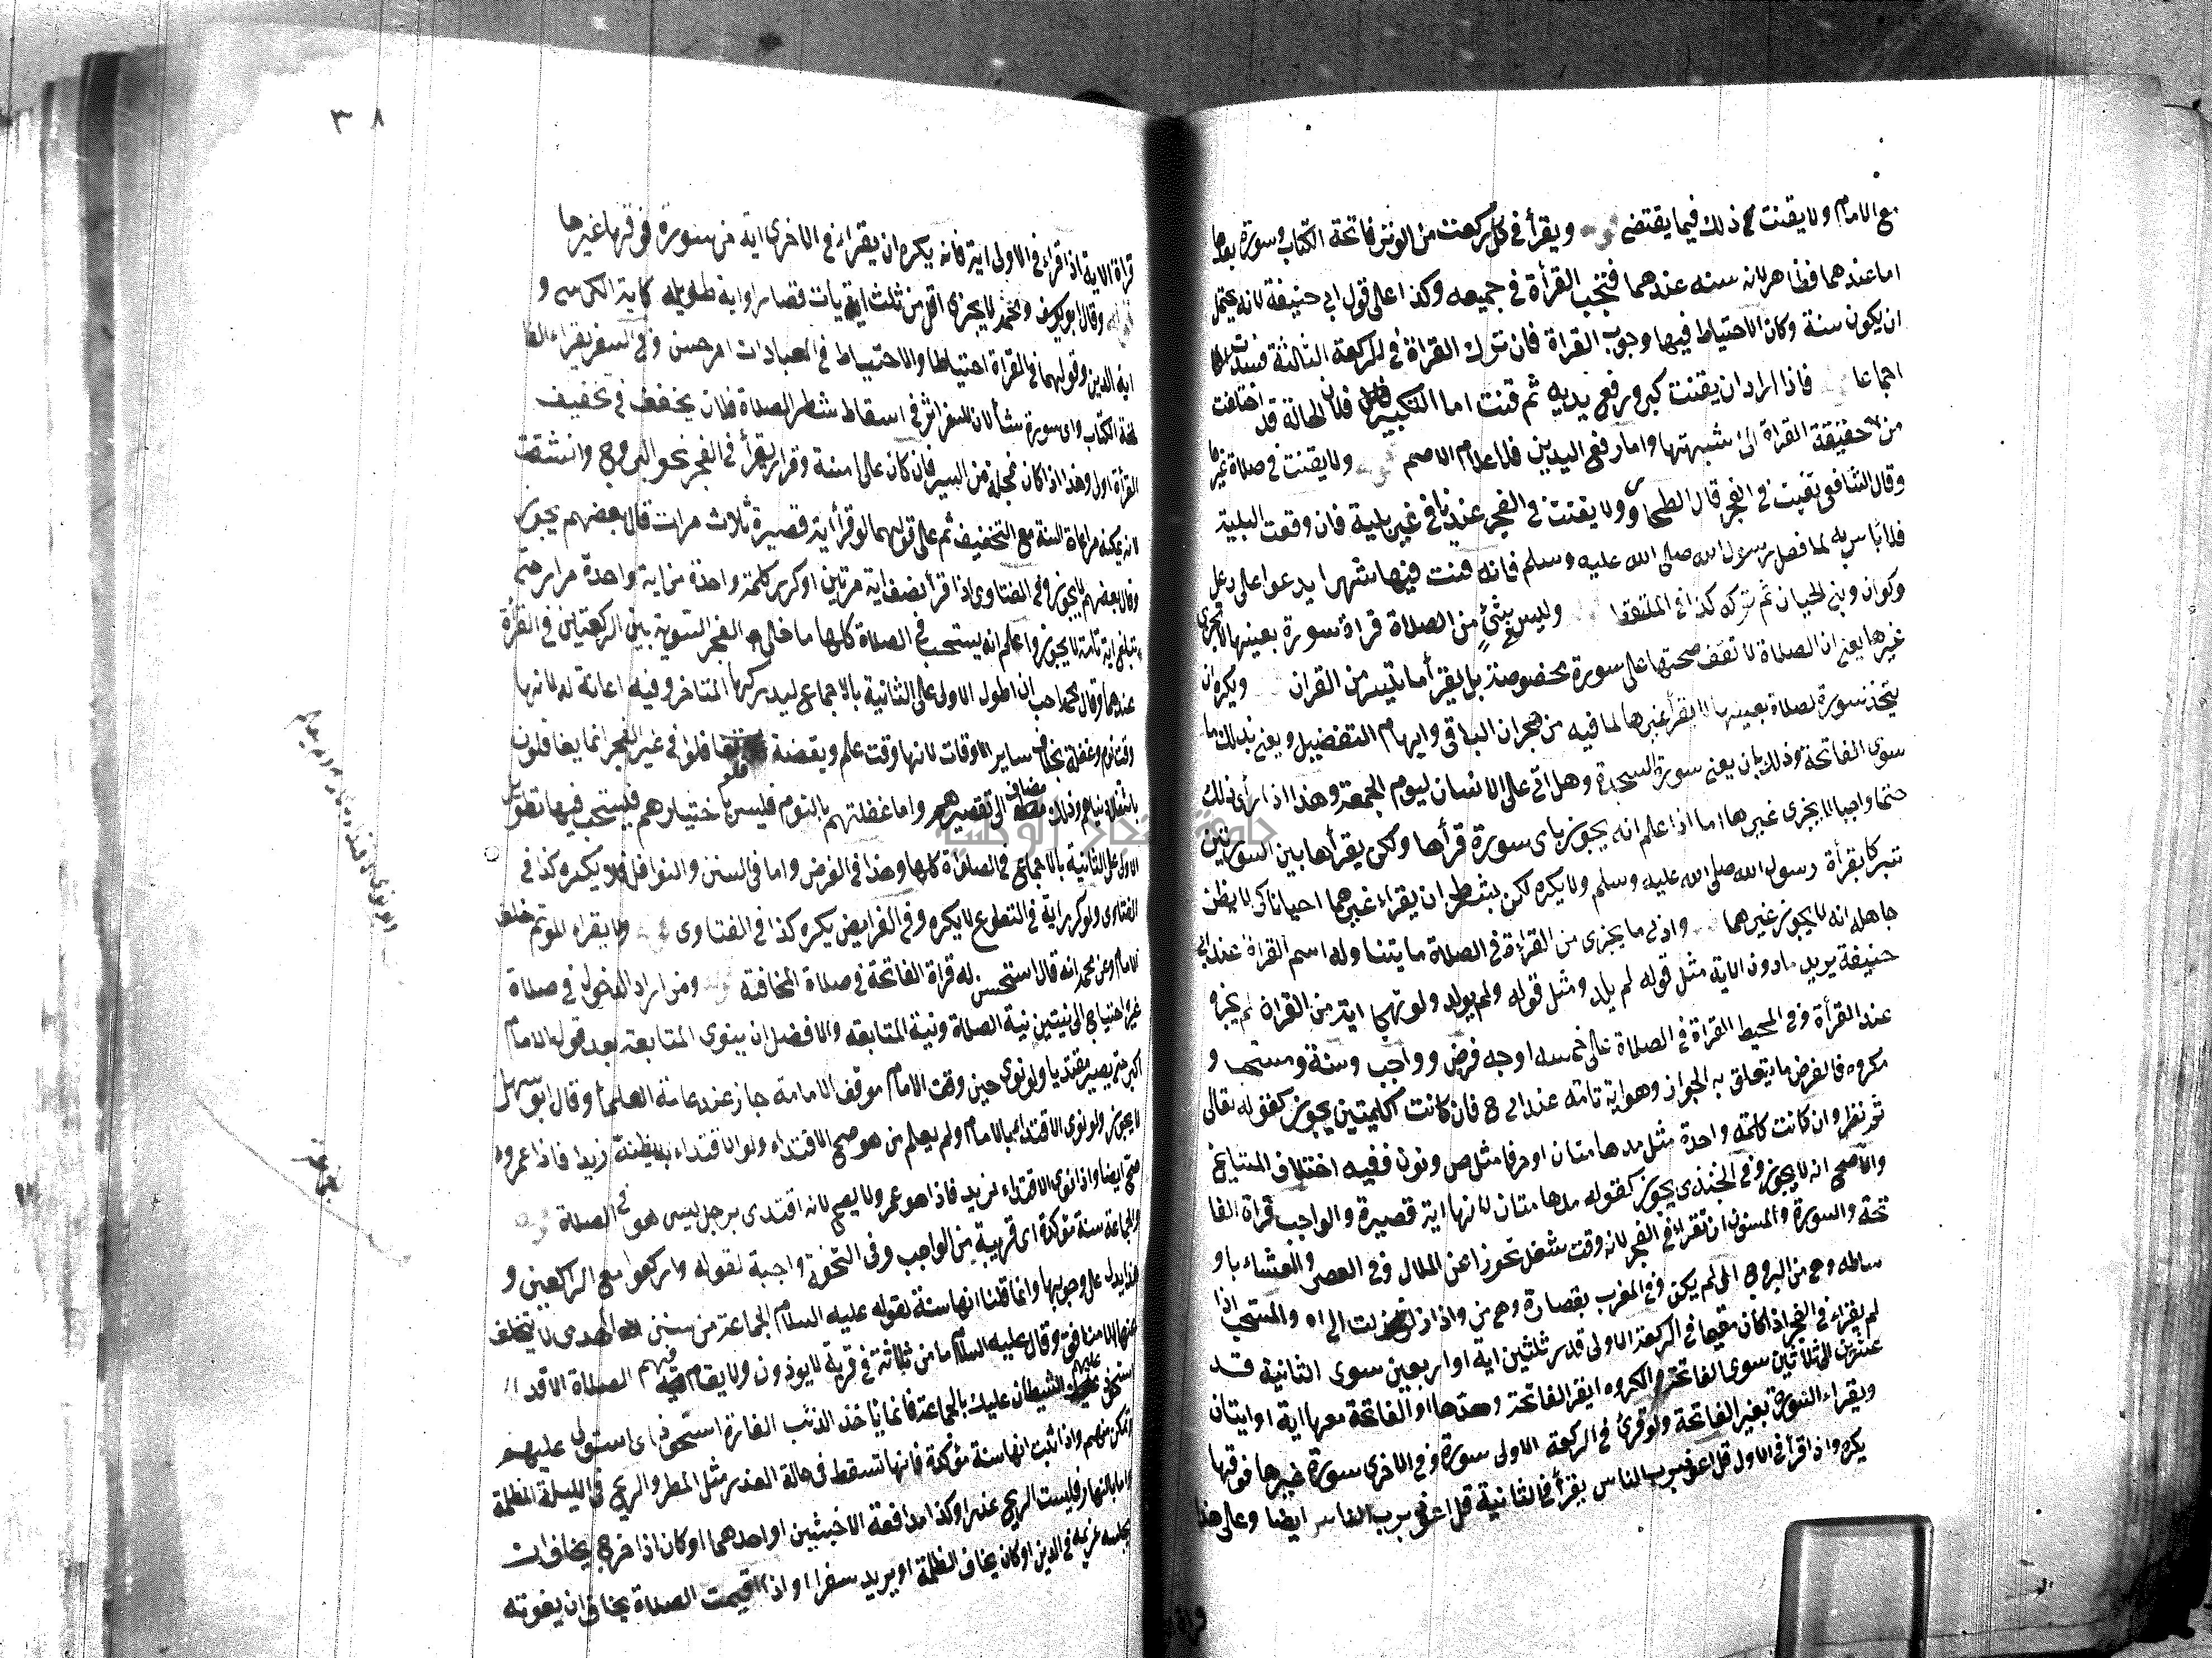 مع الامام ولا يقنت في ذلك فيما يقتضى ويقرأ في كل ركعت من الوتر فاتحة الكتاب وسورة بعدها
اما عندهما فظاهر لانه سنه عندهما فتجب القرأة في جميعه وكذا على قول ابي حنيفة لانه يحتمل
ان يكون سنة وكان الاحتياط فيها وجوب القراة فان ترك القراة في الركعة الثالثة فسدت
اجماعا فاذا اراد ان يقنت كبر ورفع يديه ثم قنت اما التكبير فلان الحالة قد اختلفت
من حقيقة القراة الى شبهتها واما رفع اليدين فلاعلام الاصم ولا يقنت في صلاة غيرها
وقال الشافعي يقنت في الفجر قال الطحاوي ولا يقنت في الفجر عندنا في غير بلية فان وقعت البلية
فلا باس به لما فعل رسول الله صلى الله عليه وسلم فانه قنت فيها شهرا يدعوا على رعل
وكوان وبني لحيان ثم تركه كذا في الملتقط وليس في شئ من الصلاة قراة سورة بعينها لا يجزي
غيرها يعني ان الصلاة لا تقف صحتها على سورة مخصوصة بل يقرأ ما تيسر من القران ويكره ان
يتخذ سورة لصلاة بعينها لا يقرأ غيرها لما فيه من هجران الباقي وايهام التفضيل ويعني بذلك ما
سوى الفاتحة وذلك بان يعني سورة السجدة وهل اتى على الانسان ليوم الجمعة وهذا اذا رأى ذلك
حتما واجبا لا يجزي غيرها اما اذا علم انه يجوز باي سورة قرأها ولكن يقرأ هابين السورتين
تبركا بقرأة رسول الله صلى الله عليه وسلم ولا يكره لكن بشرط ان يقراء غيرهما احيانا كي لا يظن
جاهل انه لا يجوز غيرهما وادنى ما يجزى من القراءة في الصلاة ما يتناوله اسم القراة عند ابي
حنيفة يريد ما دون الاية مثل قوله لم يلد ومثل قوله ولم يولد ولو تهجا اية من القران لم يجز و
عند القرأة وفي المحيط القراة في الصلاة على خمسه اوجه فرض وواجب وسنة ومستحب و
مكروه فالفرض ما يتعلق به الجواز وهو اية تامة عند ابي ح فان كانت كلمتين يجوز كقوله تعالى
ثم نظر وان كانت كلمة واحدة مثل مدهامتان او حرفا مثل ص ونون ففيه اختلاف المشايخ
والاصح انه لا يجوز وفي الخجندي يجوز كقوله مدهامتان لانها اية قصيرة والواجب قراة الفا
تحة والسورة والمسنون ان تقراء في الفجر لانه وقت شغل تحوزا عن الملال وفي العصر والعشاء باو
ساطه وهي من البروج الى لم يكن وفي المغرب بقصاره وهي من واذا زلزلت الى اه والمستحب اذا
لم يقراء في الفجر اذا كان مقيما في الركعة الاولى قدر ثلثين اية او اربعين سوى الثانية قد
عشرين الى ثلاثين سوى الفاتحة والمكروه ان يقرا الفاتحة وحدها او الفاتحة معها اية او ايتان
ويقراء السورة بغير الفاتحة ولو قرئ في الركعة الاولى سورة وفي الاخرى سورة غيرها فوقها
يكره واذا قرأ في الاول قل اعوذ برب الناس يقرأ في الثانية قل اعوذ برب الناس ايضا وعلى هذا
قراة
٣٨
قراة الاية اذا قراء في الاولى اية فانه يكره ان يقراء في الاخرى اية من سورة فوقها غيرها
وقال ابو يوسف ومحمد لا يجزى اقل من ثلث ايات قصار او اية طويله كاية الكرسي و
اية الدين وقولهما في القراة احتياطا والاحتياط في العبادات امر حسن وفي السفر يقراء الفا
تحة الكتاب واى سورة شا لان للسفر اثر في اسقاط شطر الصلاة فلان يخفف في تخفيف
القرأة اولى وهذا اذا كان عجلة من السير فان كان على امنة وقرار يقرأ في الفجر نحو البروج وانشقت
لانه يمكنه مراعاة السنة مع التخفيف ثم على قولهما لو قرأ اية قصيرة ثلاث مرات قال بعضهم يجوز
وقال بعضهم لا يجوز وفي الفتاوى اذا قرأ نصف اية مرتين او كرر كلمة واحدة من اية واحدة مرار حتى
تبلغ اية تامة لا يجوز واعلم انه يستحب في الصلاة كلها ما خلى الفجر التسوية بين الركعتين في القرأة
عندهما وقال محمد احب ان اطول الاولى على الثانية بالاجماع ليدركها المتاخر وفيه اعانة له لانها
وقت نوم وغفلة بخلاف ساير الاوقات لانها وقت علم ويقضة فلو تغافلوا في غير الفجر انما يغافلون
باشغال دنياهم وذلك مضاف الى تقصيرهم واما غفلتهم بالنوم فليس باختيارهم فيستحب فيها تطويل
الاولى على الثانية بالاجماع في الصلاة كلها وهذا في الفرض واما في السنن والنوافل فلا يكره كذا في
الفتاوى ولو كرر اية في التطوع لا يكره وفي الفرايض يكره كذا في الفتاوى ولا يقراء الموتم خلف
الامام وعن محمد انه قال استحسن له قراة الفاتحة في صلاة المخافتة ومن اراد الدخول في صلاة
غيره احتياج الى نيتين نية الصلاة ونية المتابعة والافضل ان ينوى المتابعة بعد قول الامام
اكبر حتى يصير مقتديا ولو نوى حين وقف الامام موقف الامامة جاز عند عامة العلما وقال ابو سهل
لا يجوز ولو نوى الاقتداء بالامام ولم يعلم من هو صح الاقتداء ولو الاقتداء به يظنه زيدا فاذا عمرو
صح ايضا واذا نوى الاقتداء لزيد فاذا هو عمر ولا يصح لانه اقتدى برجل ليس هو في الصلاة
والجماعة سنة مؤكدة اى قريبة من الواجب وفي التحفة واجبة لقوله واركعوا مع الراكعين و
هذا يدل على وجوبها وانما قلنا انها سنة لقوله عليه السلام الجماعة من سنن الهدى لا يتخلف
عنها الا منافق وقال عليه السلام ما من ثلاثة في قرية لا يوذون ولا يقام فيهم الصلاة الا قد
استحوذ عليهم الشيطان عليك بالجماعة فانما ياخذ الذئب الفارة استحوذ اى استولى عليهم
وتمكن منهم واذا ثبت انها سنة مؤكدة فانها تسقط في حالة العذر مثل المطر والريح في الليلة المظلمة
واما بالنهار فليست الريح عذرا وكذا مدافعة الاخبثين او احدهما او كان اذا خرج يخاف ان
يحبسه غريمه في الدين او كان يخاف الظلمة او يريد سفرا او اذا اقيمت الصلاة يخاف ان يفوته
جامعة النجاح الوطنية